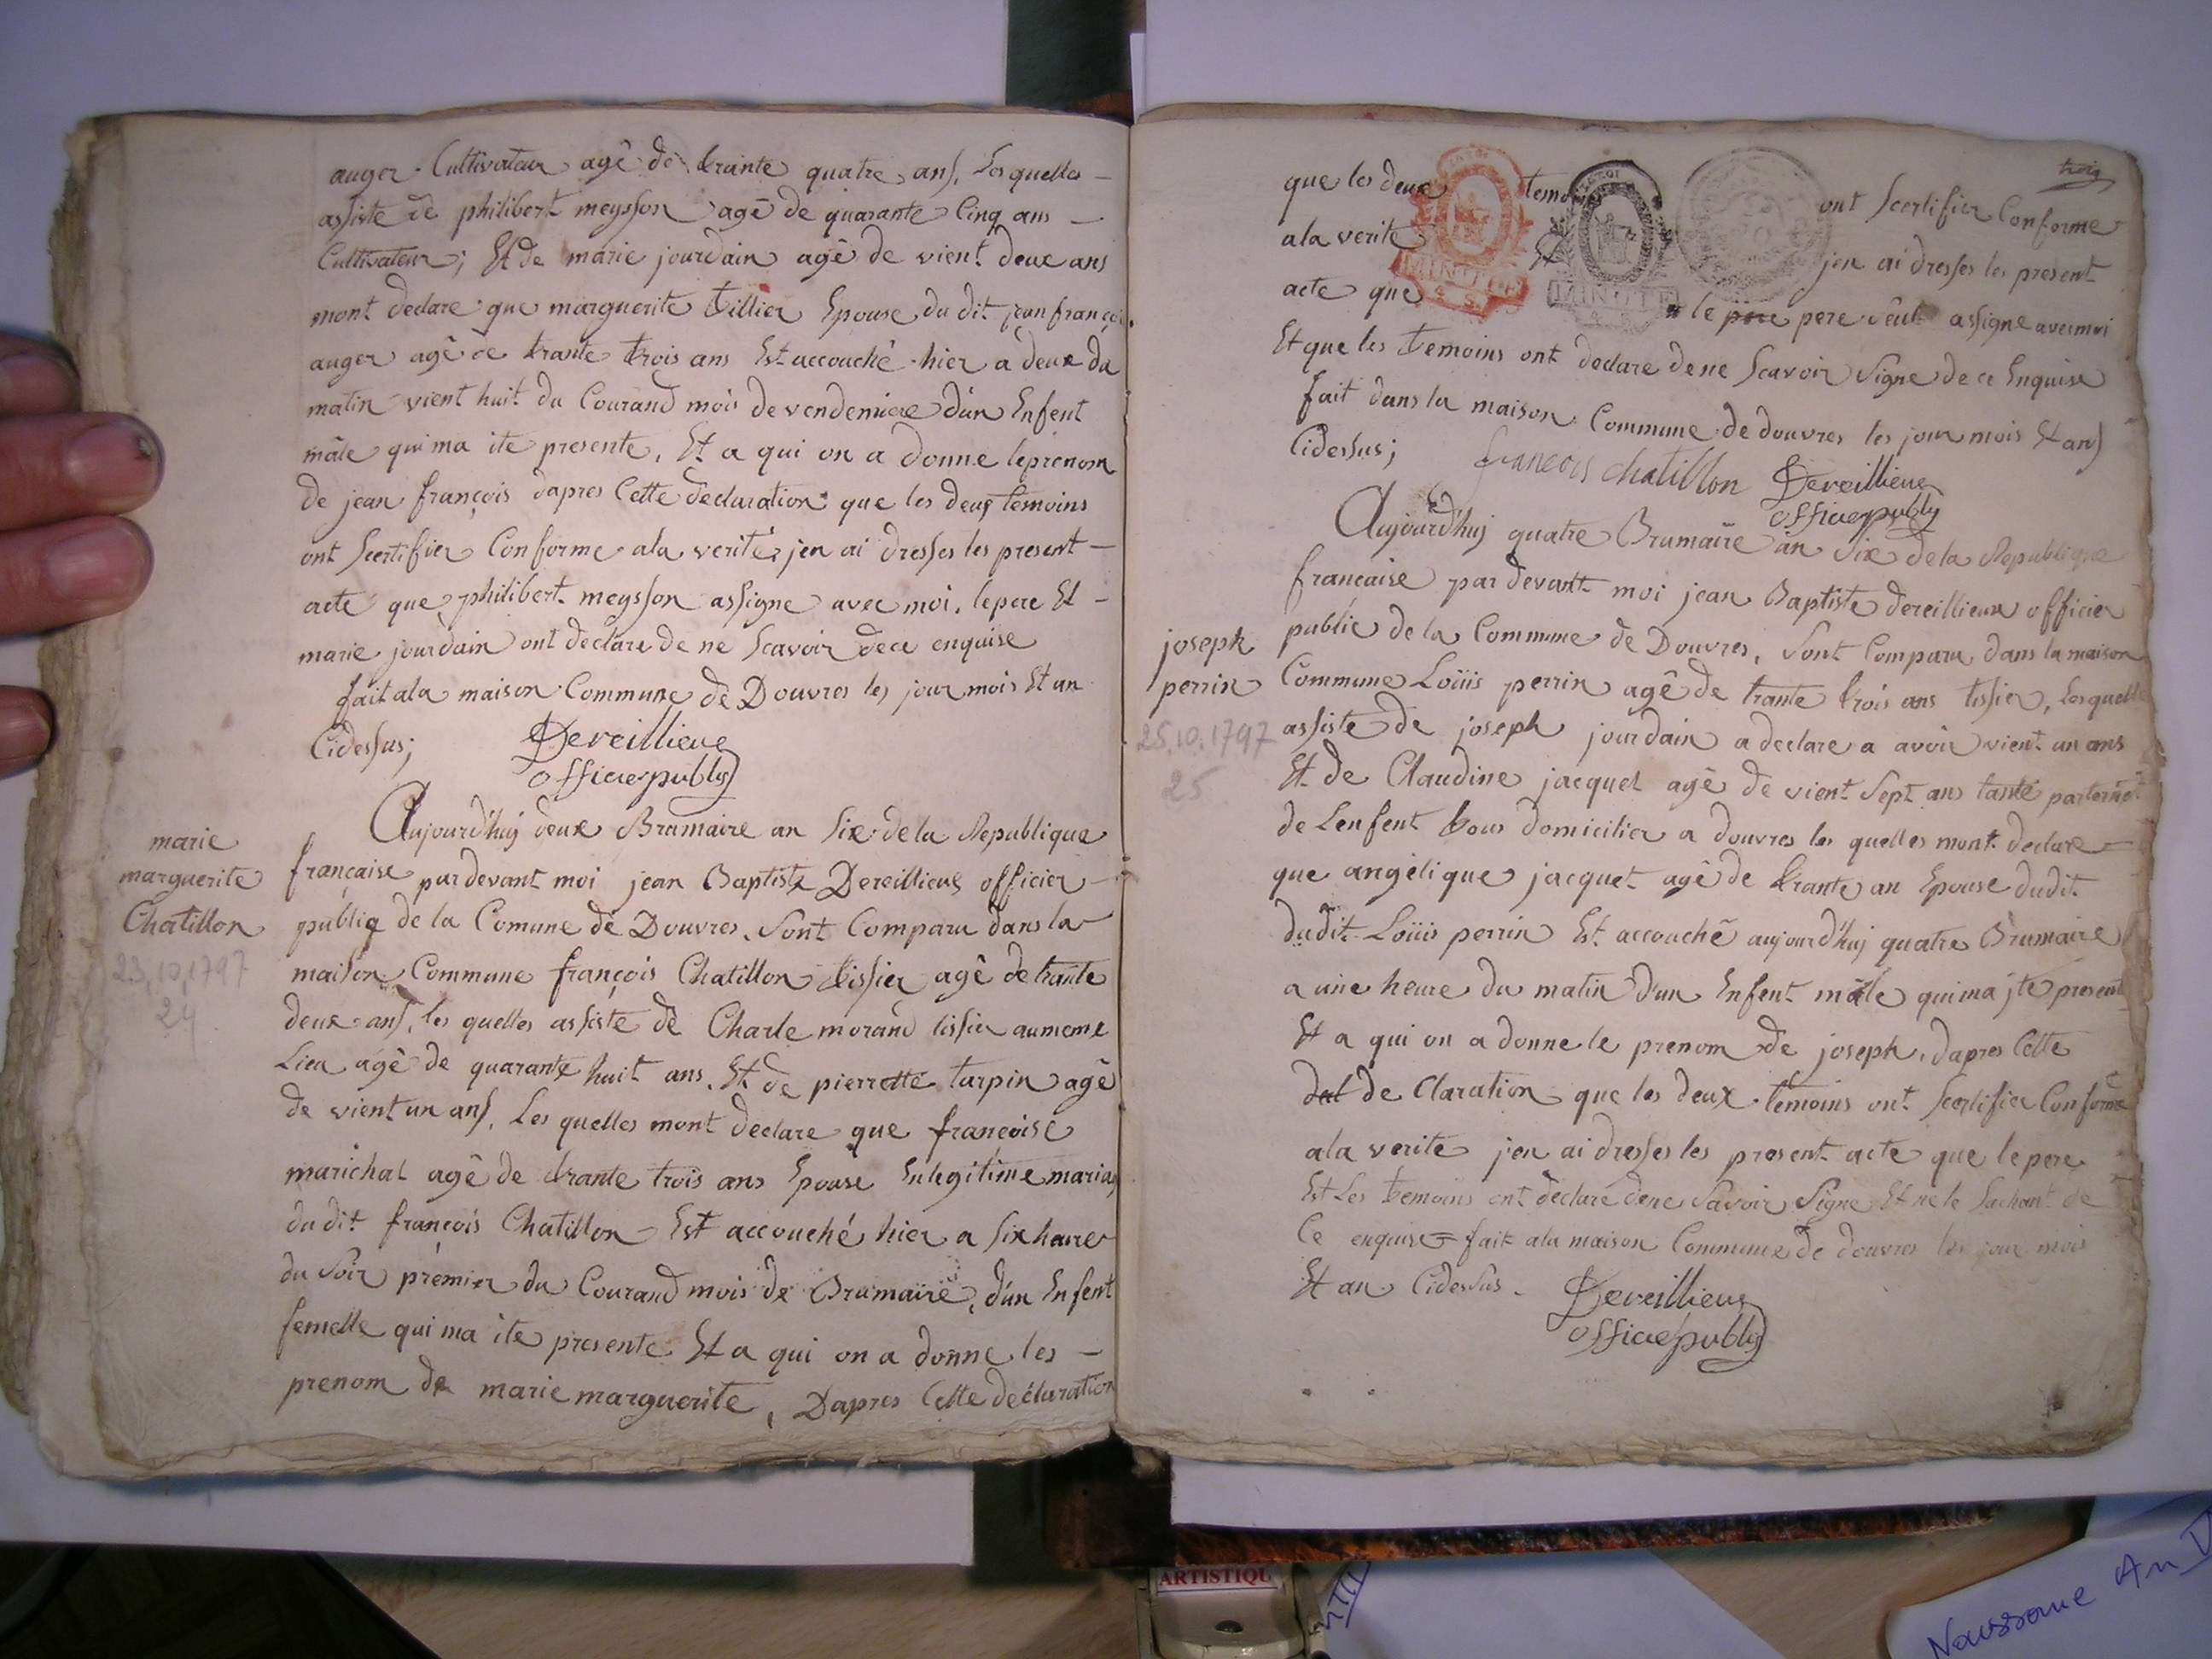 auger. Cultivateur agê de trante quatre ans, Les quelles –
assiste de philibert meysson agê de quarante Cinq ans –
Cultivateur; Et de marie jourdain agê de vient deux ans
mont declare que marguerite tillier Epouse du dit jean françois
auger agê de trante trois ans Est accouchê hier a deux du
matin vient huit du Courand mois de vendemiere d'un Enfent
mâle qui ma ite presente, Et a qui on a donne le prenom
de jean françois dapres Cette declaration que les deux temoins
ont Scertifier Conforme ala verité jen ai dresses les present –
acte que philibert meysson assigne avec moi, le pere Et –
marie jourdain ont declare de ne Scavoir de ce enquise
fait ala maison Commune de Douvres les jour mois Et an
Cidessus; Dereillieux
officier publiq
marie
marguerite
Chatillon
23.10.1797
24
Aujourd'huj deux Brumaire an Six de la Republique
française par devant moi jean Baptiste Dereillieux officier –
publiq de la Comune de Douvres, Sont Comparu dans la
maison Commune françois Chatillon tissier agê de trante
deux ans, les quelles assiste de Charle morand tissier au meme
Lieu agê de quarante huit ans, Et de pierrette turpin agê
de vient un ans, Les quelles mont declare que françoise
marichal agê de trante trois ans Epouse En legitime mariag
du dit françois Chatillon – Est accouché hier a six heure
du Soir premier du Courand mois de Brumaire, d'un Enfent
femelle qui ma ite presente Et a qui on a donne les –
prenom de marie marguerite, Dapres Cette declaration
trois
que les deux temoins ont Scertifier Conforme
ala verite Et jen ai dresses les present
acte que le pere pere Seul assigne avec moi
Et que les temoins ont declare de ne Scavoir Signe de ce Enquise
fait dans la maison Commune de douvres les jour mois Et ans
Cidessus; francois chatillon Dereillieux
officier publiq
joseph
perrin
25.10.1797
25
Aujourd'huj quatre Brumaire an Six de la Republique
française par devant moi jean Baptiste dereillieux officier
public de la Commune de Douvres, Sont Comparu dans la maison
Commune Loüis perrin agê de trante trois ans tissier, Les quelle
assiste de joseph jourdain a declare a avoir vient un ans
Et de Claudine jacquet agê de vient Sept ans tante
de Lenfent tous domicilier a douvres les quelles mont declare –
que angélique jacquet agê de trante an Epouse dudit
dudit Loüis perrin Est accouchê aujourd'huj quatre Brumaire
a une heure du matin d'un Enfent mâle qui ma jte present
Et a qui on a donne le prenom de joseph, dapres Cette
dal de Claration que les deux temoins ont Scertifier Conforme
ala verite jen ai dresses les present acte que le pere
Est Les temoins ont declare dene Savoir Signe Et ne le Sachant de
Ce enquise = fait ala maison Commune de douvres les jour mois
Et an Cidessus. Dereillieux
officier publiq
ARTISTIQU